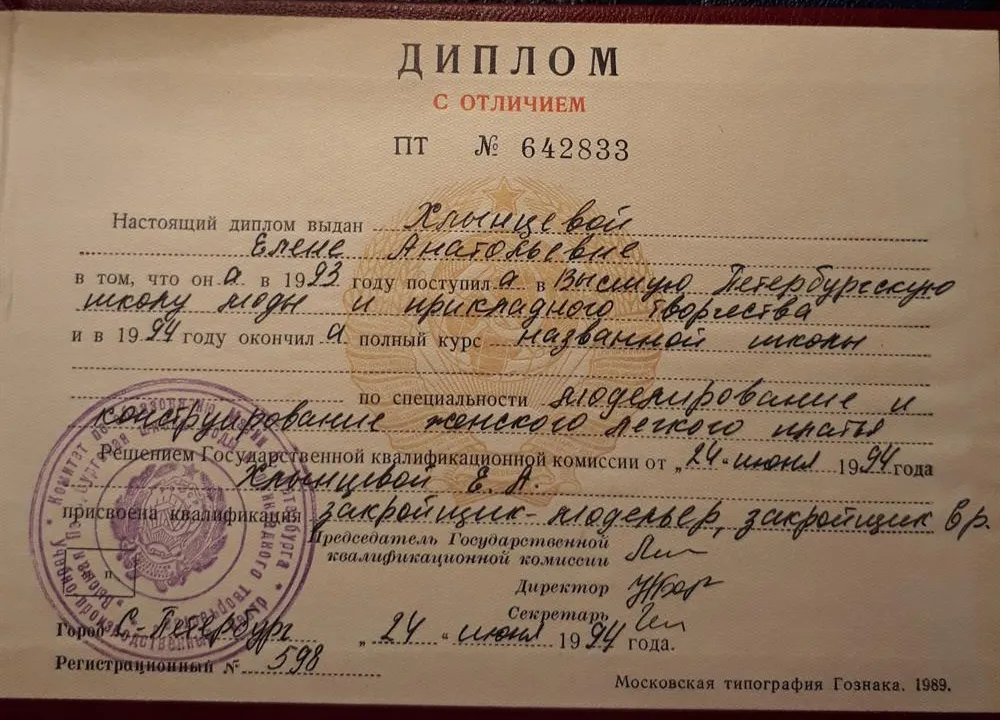 ДИПЛОМ
С ОТЛИЧИЕМ
ПТ № 642833
Настоящий диплом выдан Хлынцевой
Елене Анатольевне
в том, что он а в 1993 году поступил а в Высшую Петербургскую
школу моды и прикладного творчества
и в 1994 году окончил а полный курс названной школы
по специальности моделирование и
конструирование женского легкого платья
Решением Государственной квалификационной комиссии от „24“ июня 1994 года
Хлынцевой Е. А.
присвоена квалификация закройщик-модельер, закройщик вр.
Председатель Государственной
квалификационной комиссии
Директор
Секретарь
Город С-Петербург „24“ июня 1994 года.
Регистрационный № 598
Московская типография Гознака. 1989.